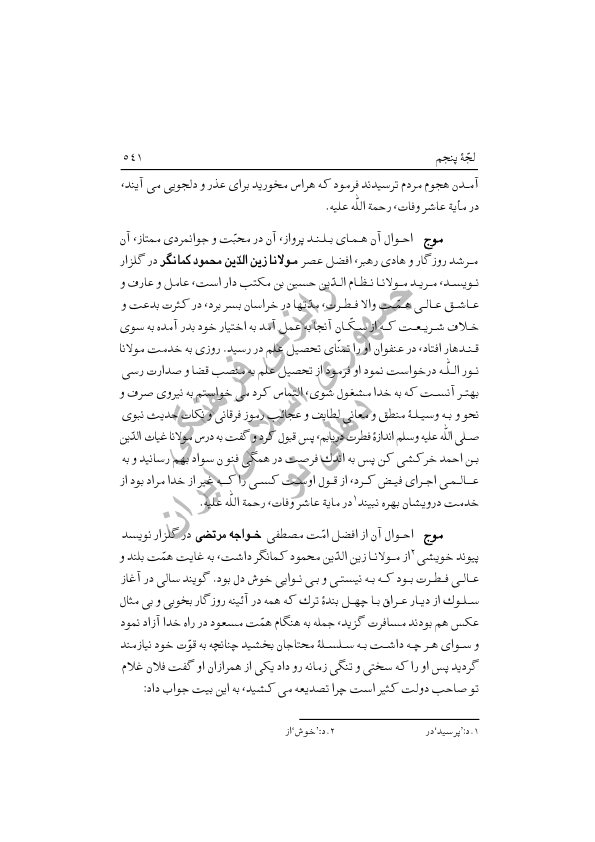 لجّهٔ پنجم ٥٤١
آمـدن هجوم مردم ترسیدند فرمود که هراس مخورید برای عذر و دلجویی می آیند،
در مأیهٔ عاشر وفات، رحمة اللّه علیه.
موج احـوال آن هـمـای بـلـنـد پرواز، آن در محبّت و جوانمردی ممتاز، آن
مـرشد روزگار و هادی رهبر، افضل عصر مـولانا زین الدّین محمود کمانگر در گلزار
نویسد، مـریـد مـولانـا نـظـام الـدّین حسین بن مکتب دار است، عامل و عارف و
عـاشـق عـالـی هـمّـیـت والا فـطـرت، مدّتها در خراسان بسر برد، در کثرت بدعت و
خـلاف شـریـعـت کـه از سـکّـان آنجا به عمل آمد به اختیار خود بدر آمده به سوی
قـندهار افتاد، در عنفوان او را تمنّای تحصیل علم در رسید. روزی به خدمت مولانا
نـور اللّـه درخواست نمود او فرمود از تحصیل علم به منصب قضا و صدارت رسی
بهتـر آنـسـت کـه به خدا مشغول شوی، التماس کرد می خواستم به نیروی صرف و
نحو و به وسیـلـهٔ منطق و معانی لطایف و عجائب رموز فرقانی و نکات حدیث نبوی
صـلی اللّه علیه وسلم اندازهٔ فطرت دریابم، پس قبول کرد و گفت به درس مولانا غیاث الدّین
بـن احمد خرکشی کن پس به اندك فرصت در همگی فنون سواد بهم رسانید و به
عـالـمـی اجـرای فیـض کـرد، از قـول اوست کسـی را کـه غیر از خدا مراد بود از
خدمت درویشان بهره نبیند١ در مایهٔ عاشر وفات، رحمة اللّه علیه.
موج احـوال آن از افضل امّت مصطفی خـواجه مرتضی در گلزار نویسد
پیوند خویشی٢ از مـولانـا زین الدّین محمود کمانگر داشت، به غایت همّت بلند و
عـالـی فـطـرت بـود کـه بـه نیستـی و بـی نـوایی خوش دل بود. گویند سالی در آغاز
سـلـوك از دیـار عـراق بـا چـهـل بندهٔ ترك که همه در آئینه روزگار بخوبی و بی مثال
عکس هم بودند مسافرت گزید، جمله به هنگام همّت مسعود در راه خدا آزاد نمود
و سـوای هـر چـه داشـت بـه سـلـسـلـهٔ محتاجان بخشید چنانچه به قوّت خود نیازمند
گردید پس او را که سختی و تنگی زمانه رو داد یکی از همرازان او گفت فلان غلام
تو صاحب دولت کثیر است چرا تصدیعه می کشید، به این بیت جواب داد:
١. د: 'پرسید' در ٢. د: 'خوش' از
رایزنی فرهنگی
جمهوری اسلامی ایران
دهلی نو